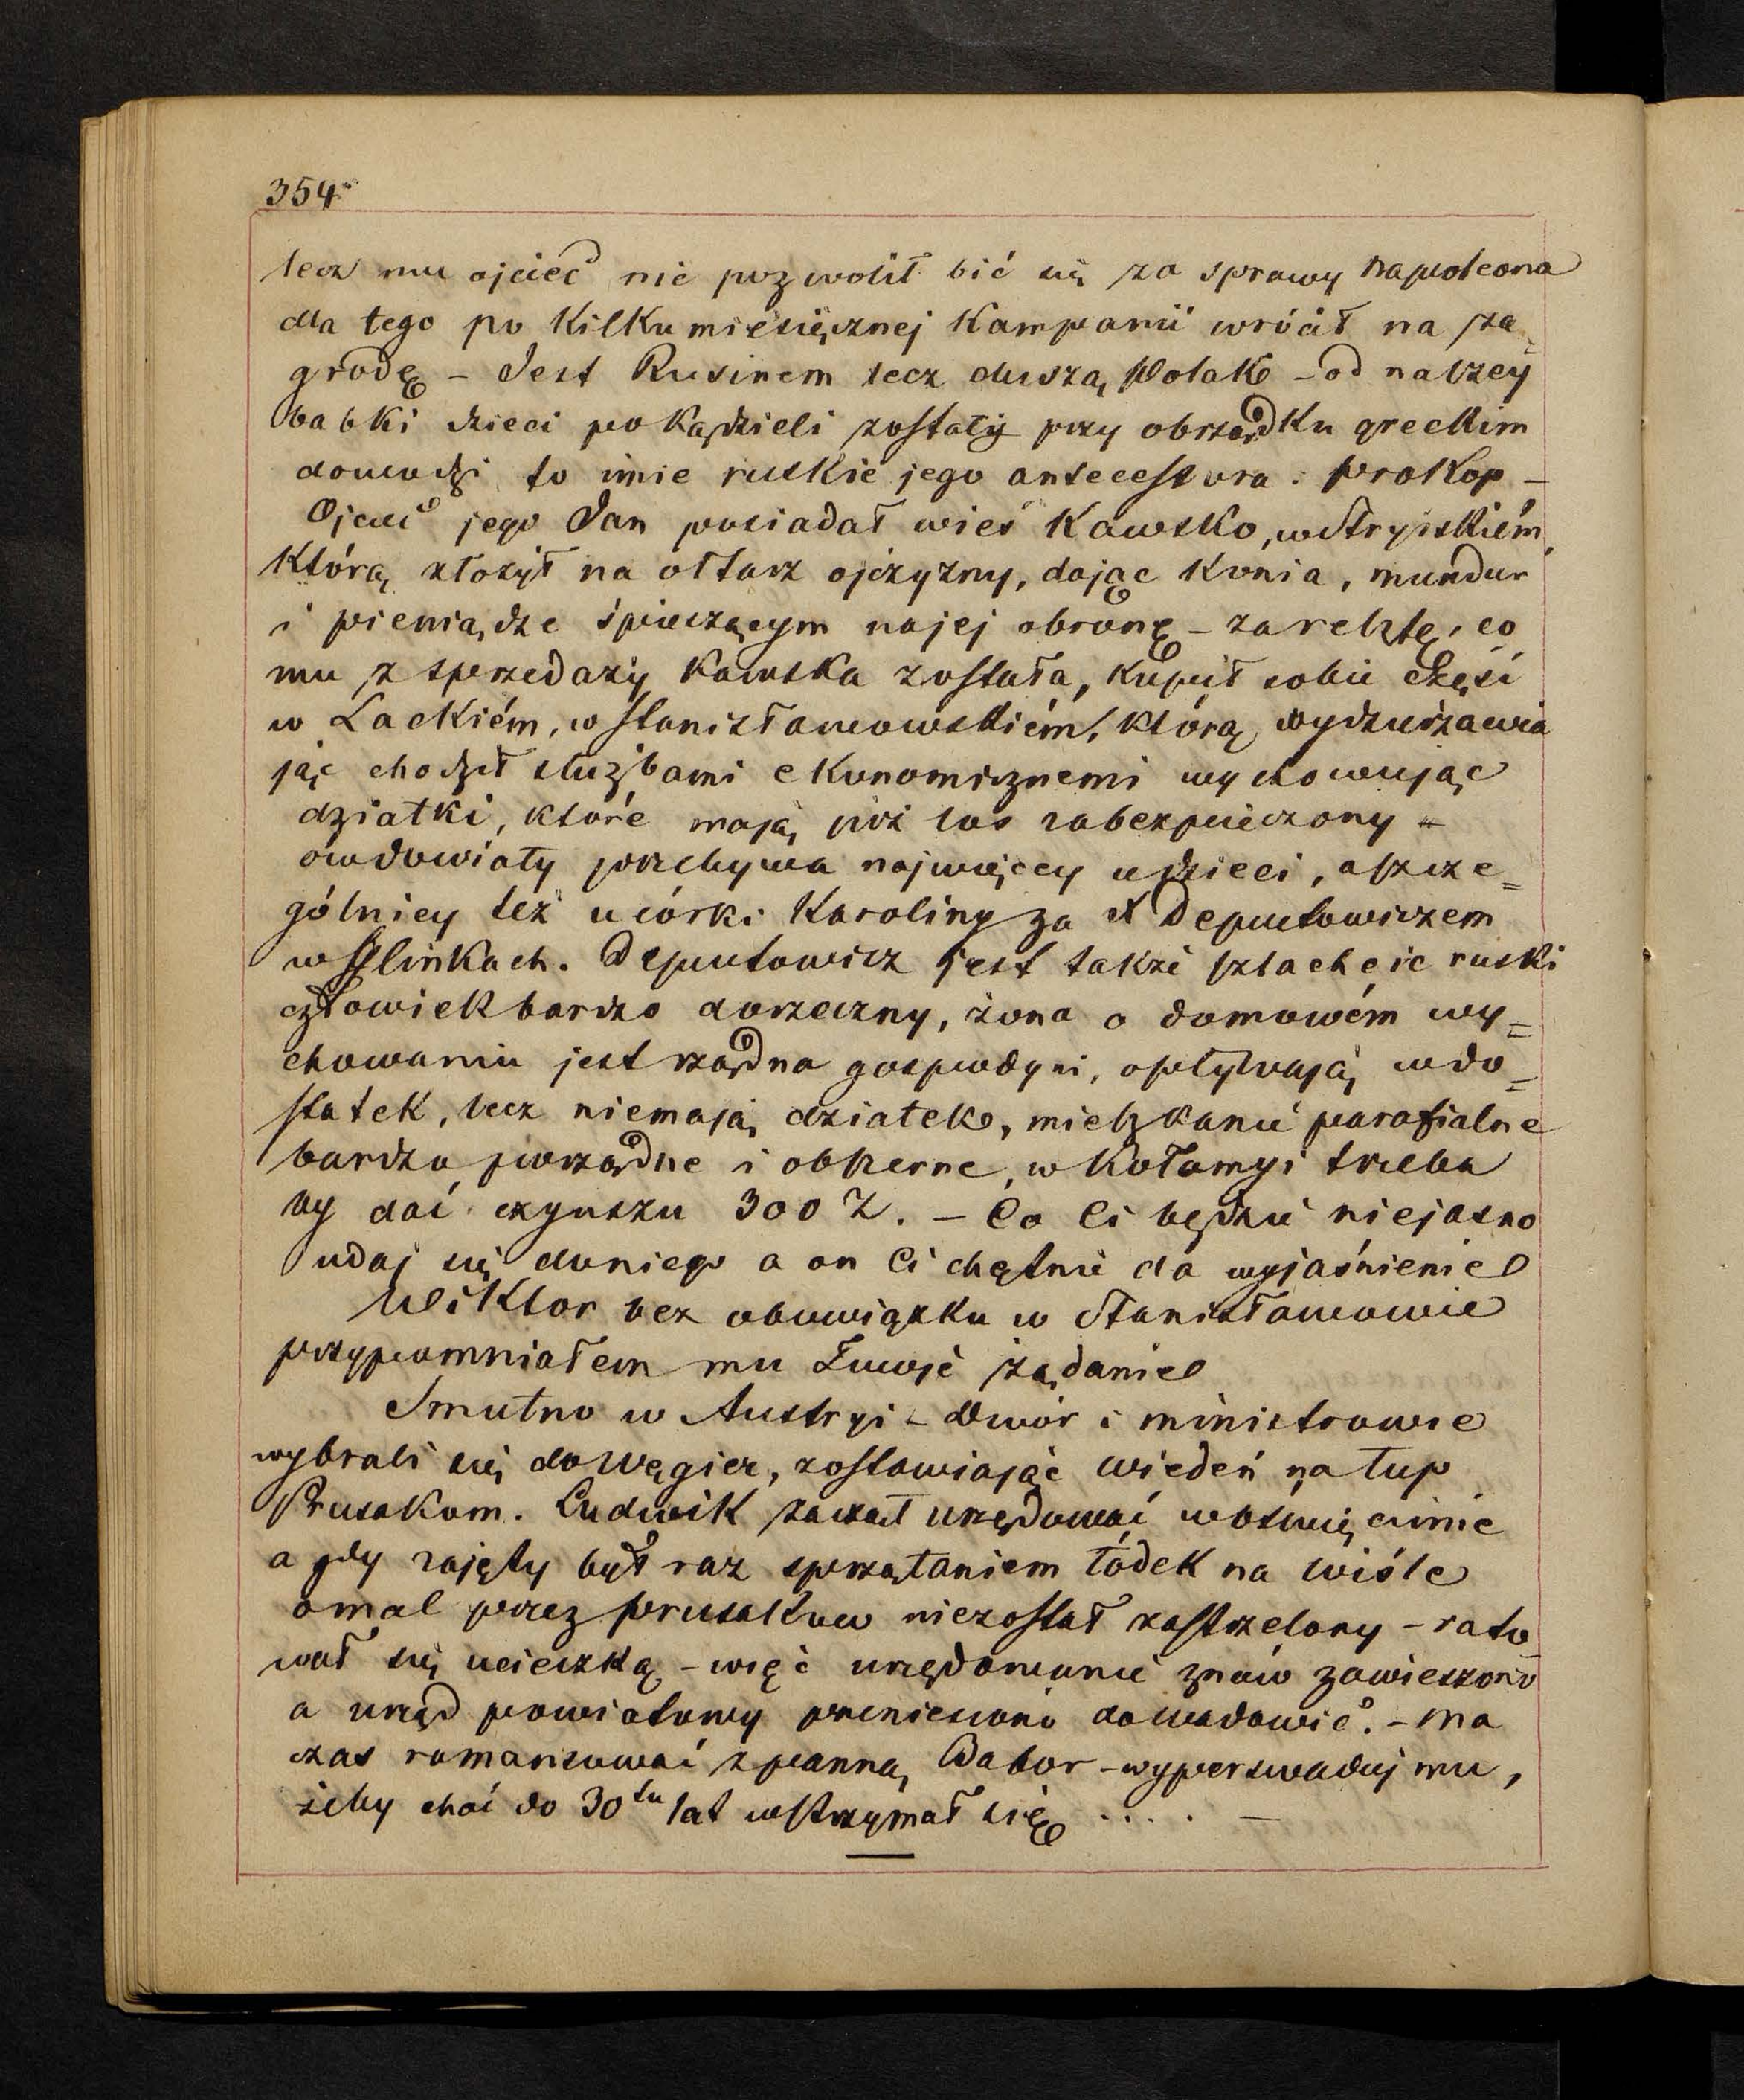 354
lecz mu ojciec nie pozwolił bić się za sprawy Napoleona
dla tego po kilkumiesięcznej kampanii wrócił na za=
grodę – Jest Rusinem lecz duszą Polak – od naszey
babki dzieci po kądzieli zostały przy obrządku greckim
dowodzi to imie ruskie jego antecessora: Prokop –
Ojciec jego Jan posiadał wieś Kawsko, w Stryjskiém,
którą złożył na ołtarz ojczyzny, dając konia, mundur
i pieniądze śpieszącym na jej obronę – za resztę, co
mu z sprzedaży Kawska została, kupił sobie część
w Lackiém, w Stanisławowskiém, którą wydzierżawia
jąc chodził służbami ekonomicznemi wychowując
dziatki, które mają już los zabezpieczony –
owdowiały przebywa najwięcey u dzieci, a szcze=
gólniey też u córki Karoliny za X Deputowiczem
w Hlinkach. Deputowicz jest także szlachcic ruski
człowiek bardzo dorzeczny, żona o domowém wy=
chowaniu jest rządna gospodyni, opływają w do=
statek, lecz niemają dziatek, mieszkanie parafialne
bardzo porządne i obszerne, w Kołomyi trzeba
by dać czynszu 300 Z. – Co Ci będzie niejasno
udaj się doniego a on Ci chętnie da wyjaśnienie
Wiktor bez obowiązku w Stanisławowie
przypomniałem mu Twoje żądanie
Smutno w Austryi – Dwór i ministrowie
wybrali się do Węgier, zostawiając Wiedeń na łup
Prusakom. Ludwik zaczął urzędować w Oświęcimie
a gdy zajęty był raz sprzątaniem łódek na Wiśle
omal przez prusaków niezostał zastrzelony – rato=
wał się ucieczką – więc urzędowanie znów zawieszono
a urząd powiatowy przeniesiono do Wadowic. – Ma
czas romansować z panną Dabor – wyperswaduj mu,
żeby choć do 30tu lat wstrzymał się .... –